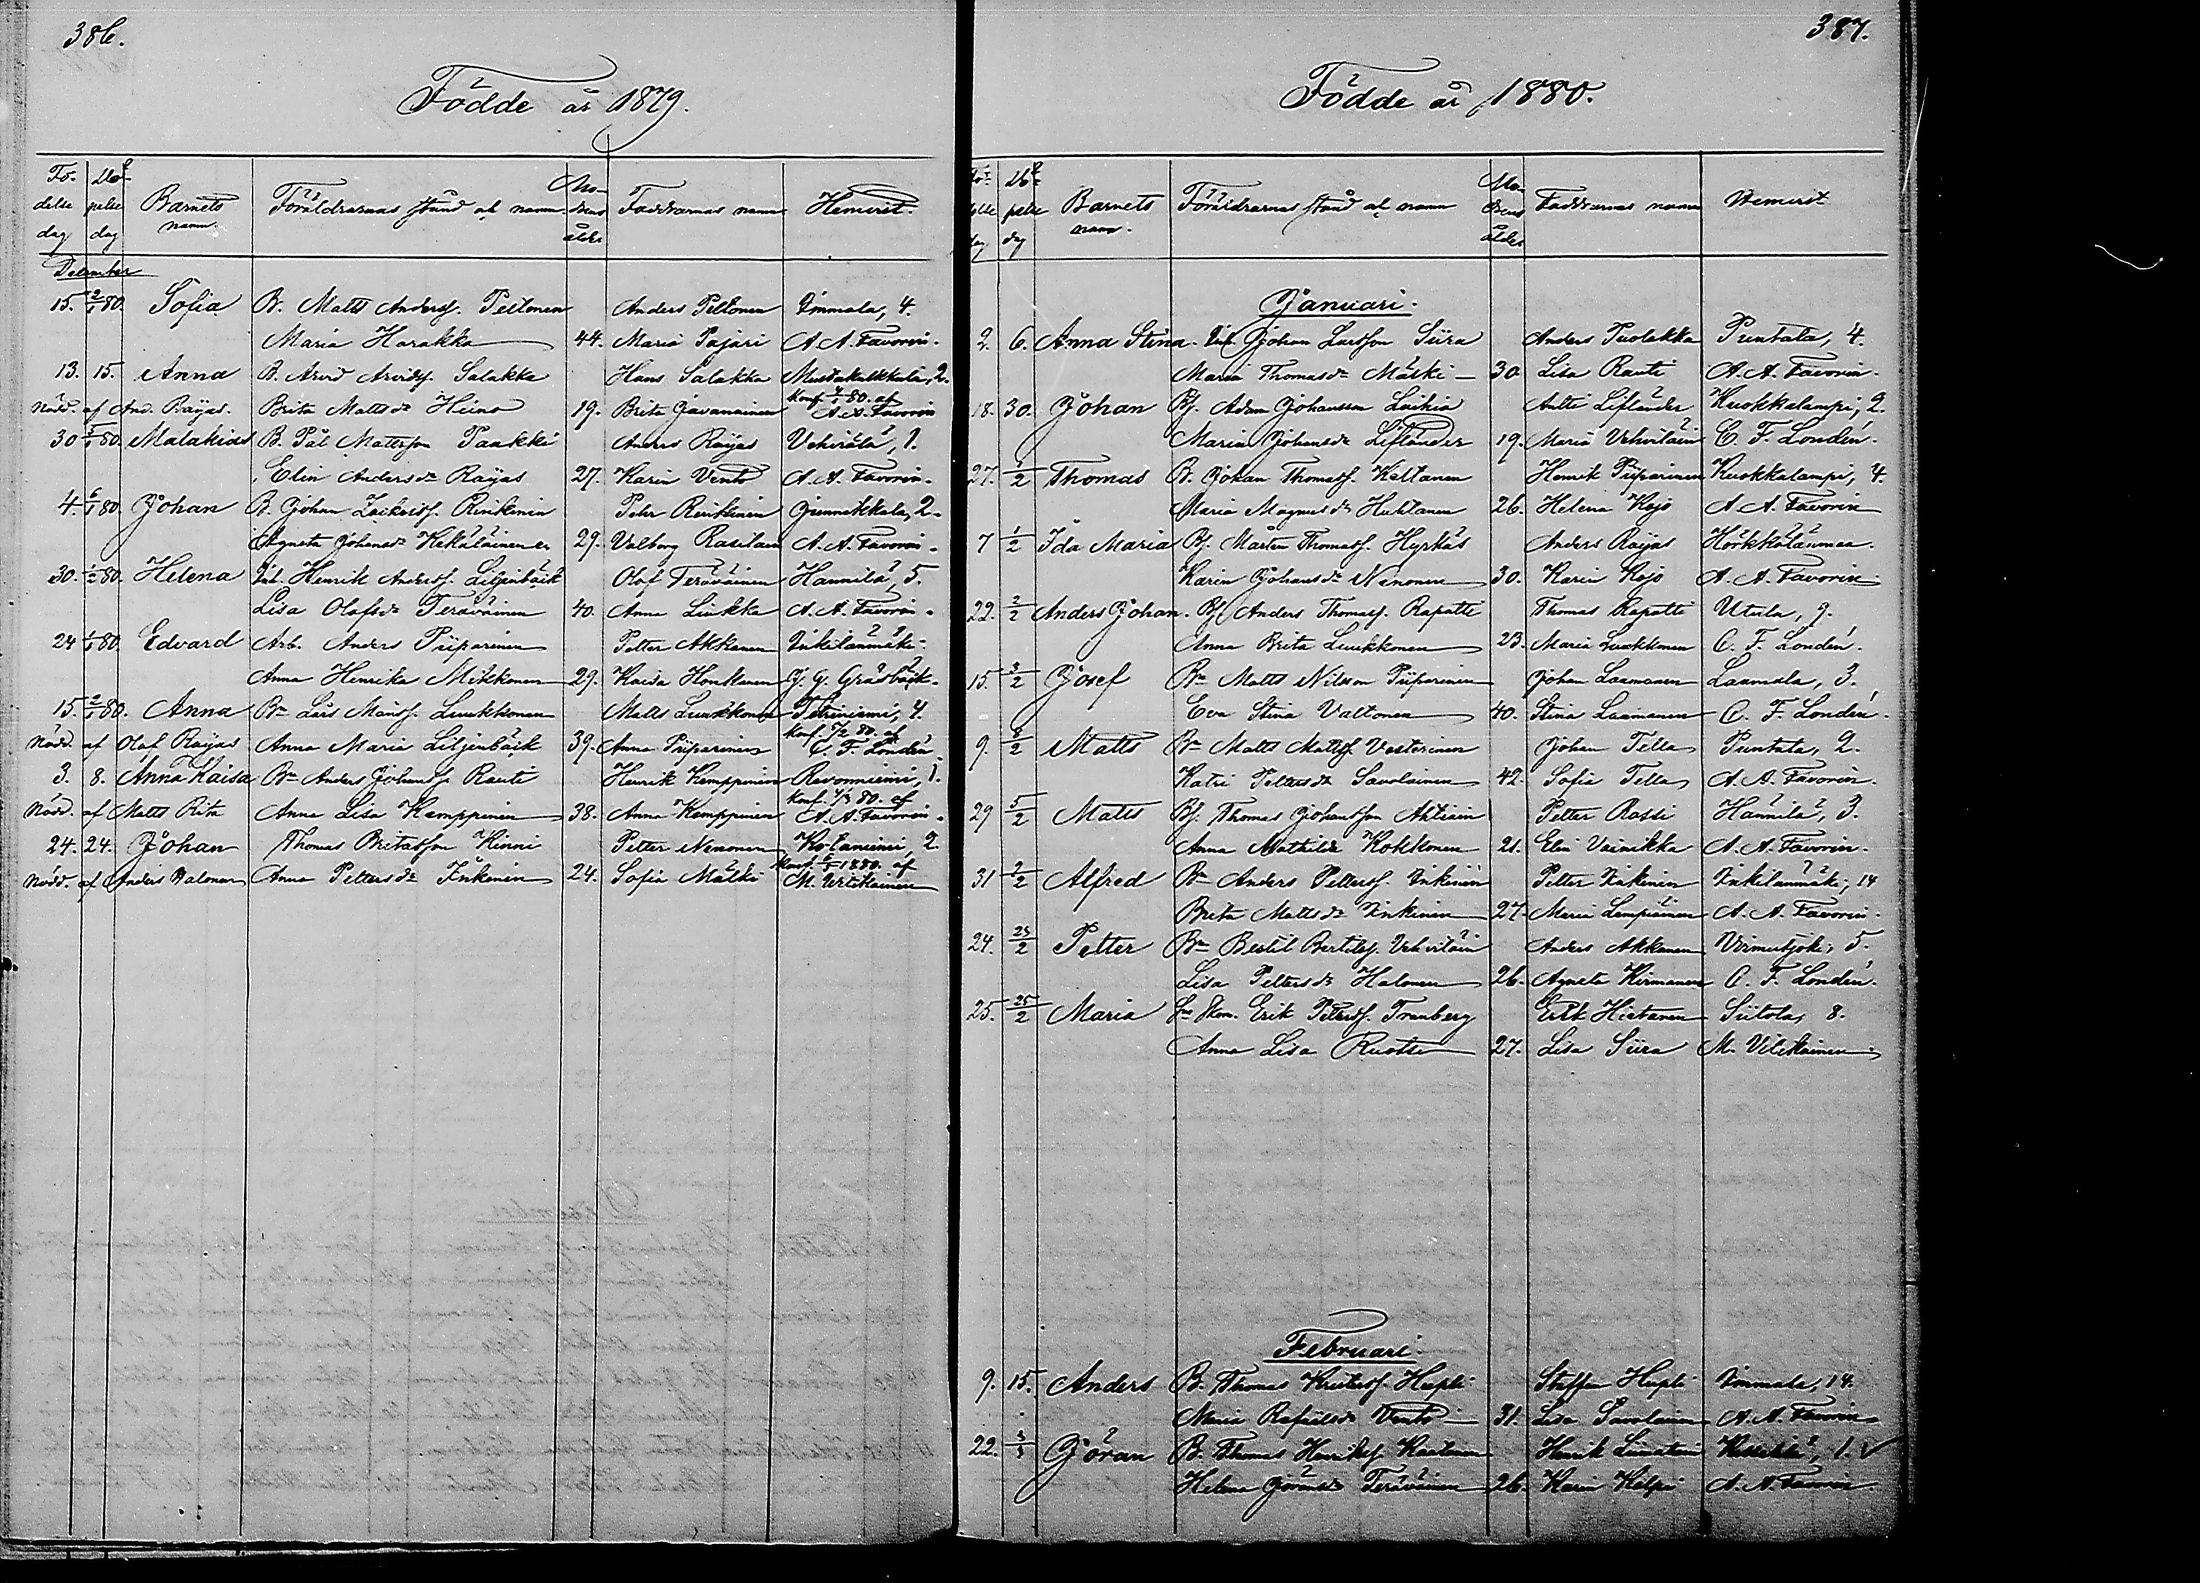 386.
Födde år 1879.
Fö- delse dag Dö- pelse dag Barnets namn. Föräldrarnas stånd och namn. Mo- drens ålder Faddrarnas namn Hemvist.
December
15. 2/1 80. Sofia B. Matts Andersf. Peltonen Anders Peltonen Immala, 4.
Maria Harakka 44. Maria Pajari A. A. Favorin.
13. 15. Anna B. Arvid Arvidsf. Salakka Hans Salakka Mustakalkkala, 2.
Nöd. af And. Räjas. Brita Mattsdr Heino 19. Brita Javanainen Konf. 80. af A. A. Favorin
30 80. Malakias B. Pål Mattsson Paakki Anders Räjas Vehviälä, 1.
Elin Andersdr Räjas 27. Karin Vento A. A. Favorin.
4. 6/1 80. Johan B. Johan Rinkinen Pehr Rinkinen Junnikkala, 2.
Agneta Johansdr Kekäläinen 29. Valborg Rasilain A. A. Favorin.
30. 80. Helena Inh. Henrik Andersf. Liljenbäck Olof Teräväinen Hannila, 5.
Lisa Olofsdr Teräväinen 40. Anna Liukka A. A. Favorin.
24 80. Edvard Arb. Anders Piiparinen Petter Akkanen Inkilänmäki.
Anna Henrika Mikkonen 29. Kaisa Honkanen J. G. Gråsbäck.
15. 2/1 80. Anna Bn Lars Månsf. Luukkonen Matts Luukkonen Petäniemi, 4.
Nöd. af Olof Räjas Anna Maria Liljenbäck 39. Anna Piiparinen Konf. 80. af C. F. Londén
3. 8. Anna Kaisa Bn Anders Johansf. Rauti Henrik Kemppinen Ravonniemi, 1.
Nöd. af Matts Anna Lisa Kemppinen 38. Anna Kemppinen Konf. 80. af A. A. Favorin.
24. 24. Johan Thomas Kinni Petter Nenonen Kotaniemi, 2
Nöd. af Anders Halonen Anna Pettersdr Inkinen 24. Sofia Mälki Konf. 1880. af M. Vesikainen
387.
Födde år 1880.
Fö- delse dag Dö- pelse dag Barnets namn. Föräldrarnas stånd och namn Mo- drens ålder Faddrarnas namn Hemvist
Januari.
2. 6. Anna Stina. Inh. Johan Larsson Siira Anders Puolakka Puntala, 4.
Maria Thomasdr Mäski 30 Lisa Rauti A. A. Favorin.
18. 30. Johan Bf. Adam Johansson Laihia Antti Lifländer Kuokkalampi, 2.
Maria Johansdr Lifländer 19. Maria Vehviläin C. F. Londén.
27. 1/2 Thomas B. Johan Thomasf. Kaltanen Henrik Piiparinen Kuokkalampi, 4.
Maria Magnusdr Huhtanen 26. Helena Kojo A. A. Favorin
7 1/2 Ida Maria Bf. Mårten Thomasf. Hyrkäs Anders Räjas Härskiälänmaa.
Karin Johansdr Nenonen 30. Karin Kojo A. A. Favorin.
22. 2/2 Anders Johan. Bf. Anders Thomasf. Rapatti Thomas Rapatti Utula, 9.
Anna Brita Luukkonen 23. Maria Luukkonen C. F. Londén.
15. 3/2 Josef Bn Matts Nilsson Piiparinen Johan Laamanen Laamala, 3.
Eva Stina Valtonen 40. Stina Laamanen C. F. Londén.
9. 8/2 Matts Bn Matts Mattsf. Vesterinen Johan Tella Puntala, 2.
Katri Pettersdr Savolainen 42. Sofia Tella A. A. Favorin.
29 5/2 Matts Bf. Thomas Johansson Ahtiain Petter Rossi Hännilä, 3.
Anna Mathilda Kokkonen 21. Elin Vainikka A. A. Favorin.
31 9/2 Alfred Bn Anders Pettersf. Inkinen Petter Inkinen Inkilänmäki, 14
Brita Mattsdr Inkinen 27. Maria Lempiäinen A. A. Favorin.
24. 24/2 Petter Bn Bertil Bertilsf. Vehviläin Anders Akkanen Virmutjoki, 5.
Lisa Pettersdr Halonen 26. Agneta Kirmanen C. F. Londén.
25. 25/2 Maria Skom. Erik Pettersf. Tranberg Erik Hietanen Siitola, 8.
Anna Lisa Ruotsi 27. Lisa Siira M. Vesikainen.
Februari.
9. 15. Anders B. Thomas Kristersf. Hupli Staffan Hupli Immala, 14.
Maria Rafaelsdr Vento 31. Lisa Savolainen A. A. Favorin
22. Göran B. Thomas Henriksf. Kaatonen Henrik Liimatain 1. ✓
Helena Göransdr Teräväinen 26. Karin Kälpi A. A. Favorin